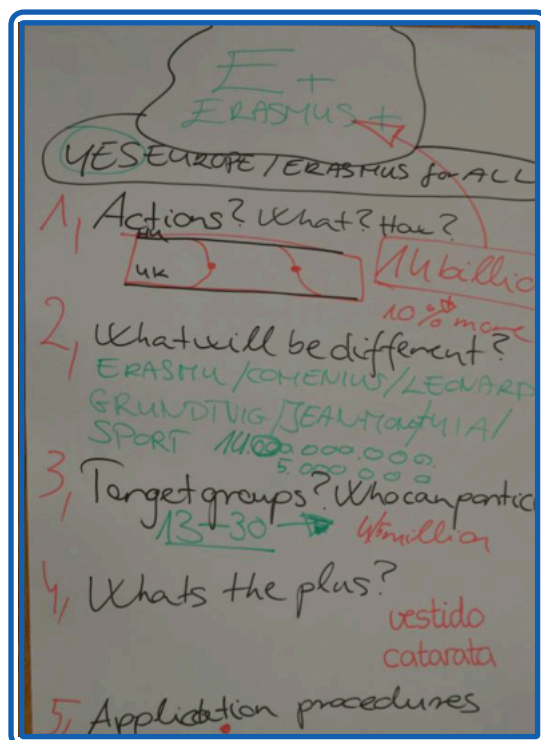 E+
ERASMUS +
YES EUROPE / ERASMUS for ALL
1, Actions? What? How?
UK
14 billio
10% more
2, What will be different?
ERASMU / COMENIUS / LEONARD
GRUNDTVIG / JEAN MONET / YIA /
SPORT 14.000.000.000.
5.000 000
3, Target groups? Who can partic
13-30 → 4,5 million
4, Whats the plus?
vestido
catarata
5, Application procedures